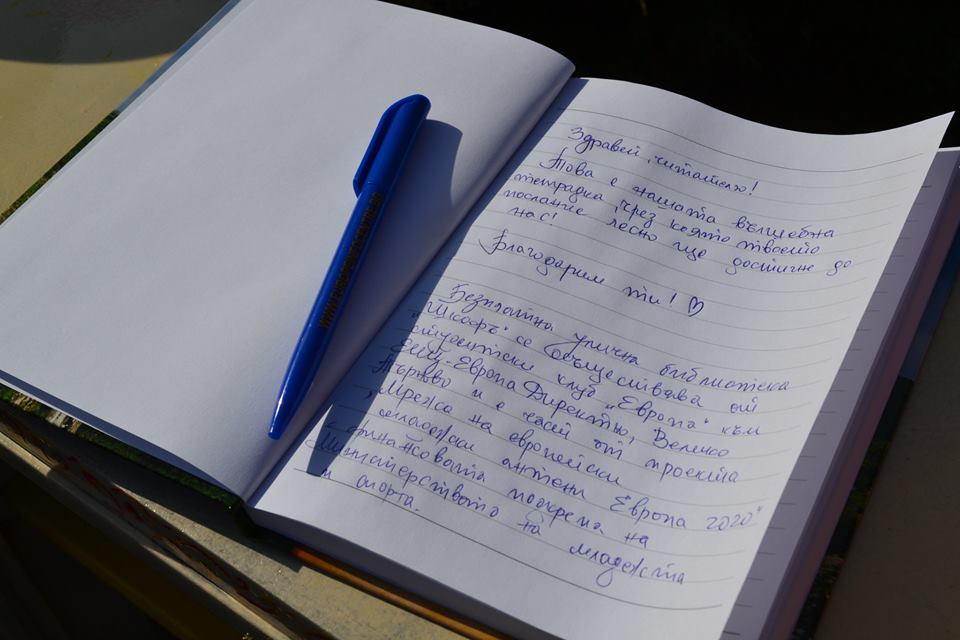 Здравей, читателю!
Това е нашата вълшебна
тетрадка, чрез която твоето
послание лесно ще достигне до
нас!
Благодарим ти! ♡
Безплатна улична библиотека
"Шкафъ" се осъществява от
студентски клуб "Европа" към
ЕИЦ-Европа Директно, Велико
Търново и е част от проекта
"Мрежа на европейски
младежки антени Европа 2020"
с финансовата подкрепа на
Министерството на младежта
и спорта.